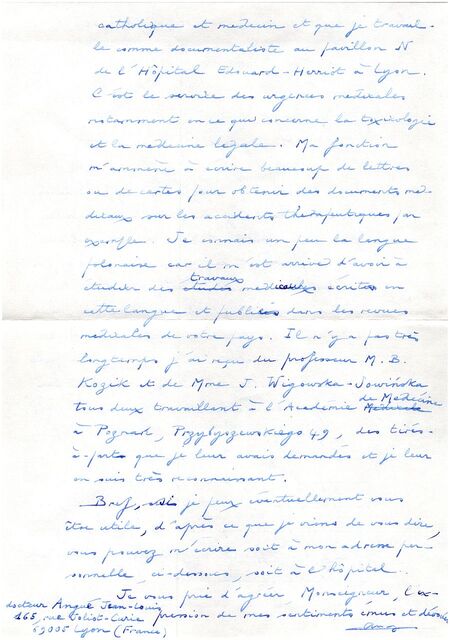 catholique et medecin et que je travail-
le comme documentaliste au pavillon N
de l'Hôpital Edouard-Herriot à Lyon.
C'est le service des urgences medicales
notamment en ce qui concerne la toxicologie
et la médecine légale. Ma fonction
m'amène à écrire beaucoup de lettres
ou de cartes pour obtenir des documents mé-
dicaux sur les accidents thérapeutiques par
exemple. Je connais un peu la langue
polonaise car il m'est arrivé d'avoir à
travaux
étudier des études medicales écrites en
cette langue et publiés dans les revues
medicales de votre pays. Il n'y a pas très
longtemps j'ai reçu du professeur M. B.
Kozik et de Mme J. Wigowska-Sowińska
de Médecine
tous deux travaillant à l'Academie Médicale
à Poznań, Przybyszewskiego 49, des tirés-
à-parts que je leur avais demandes et je leur
en suis très reconnaissant.
Bref, si je peux éventuellement vous
être utile, d'après ce que je viens de vous dire,
vous pouvez m'écrire soit à mon adresse per-
sonnelle, ci-dessous, soit à l'hôpital.
Je vous prie d'agréer Monseigneur, l'ex-
pression de mes sentiments emus et dévoués
docteur Angue Jean-Louis
165, rue Joliot-Curie
69005 Lyon (France)